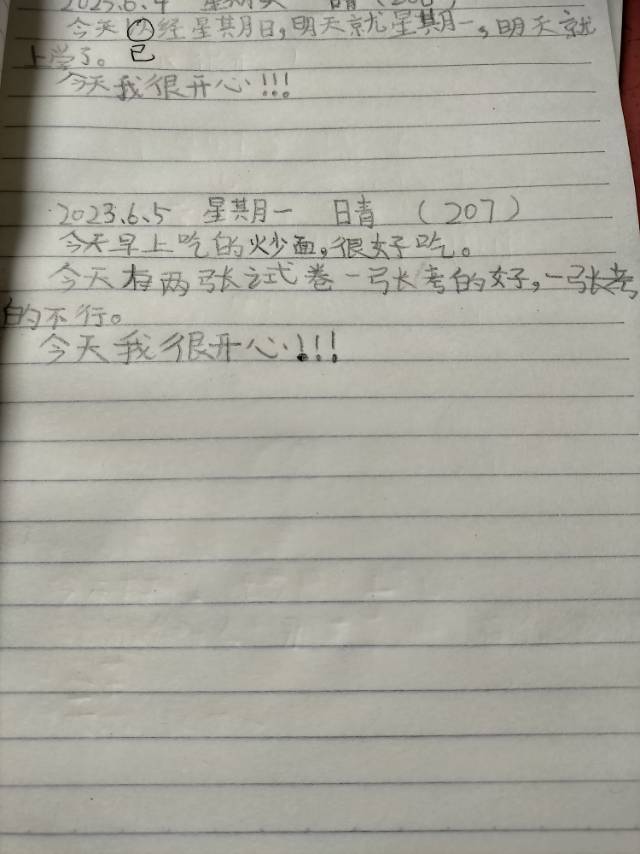 2023.6.4 星期天 日晴 (206)
今天以经星期日,明天就星期一,明天就
已
上学了。
今天我很开心!!!
2023.6.5 星期一 日青 (207)
今天早上吃的火少面,很好吃。
今天有两张试卷一张考的好,一张考
的不行。
今天我很开心!!!